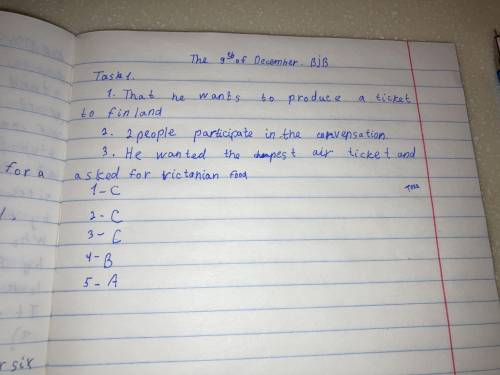 The 9th of December. BjB
Task 1.
1. That he wants to produce a ticket
to finland
2. 2 people participate in the conversation.
3. He wanted the cheapest air ticket and
for a
asked for victanian food
1 - C
2 - C
3 - C
4 - B
5 - A
r six